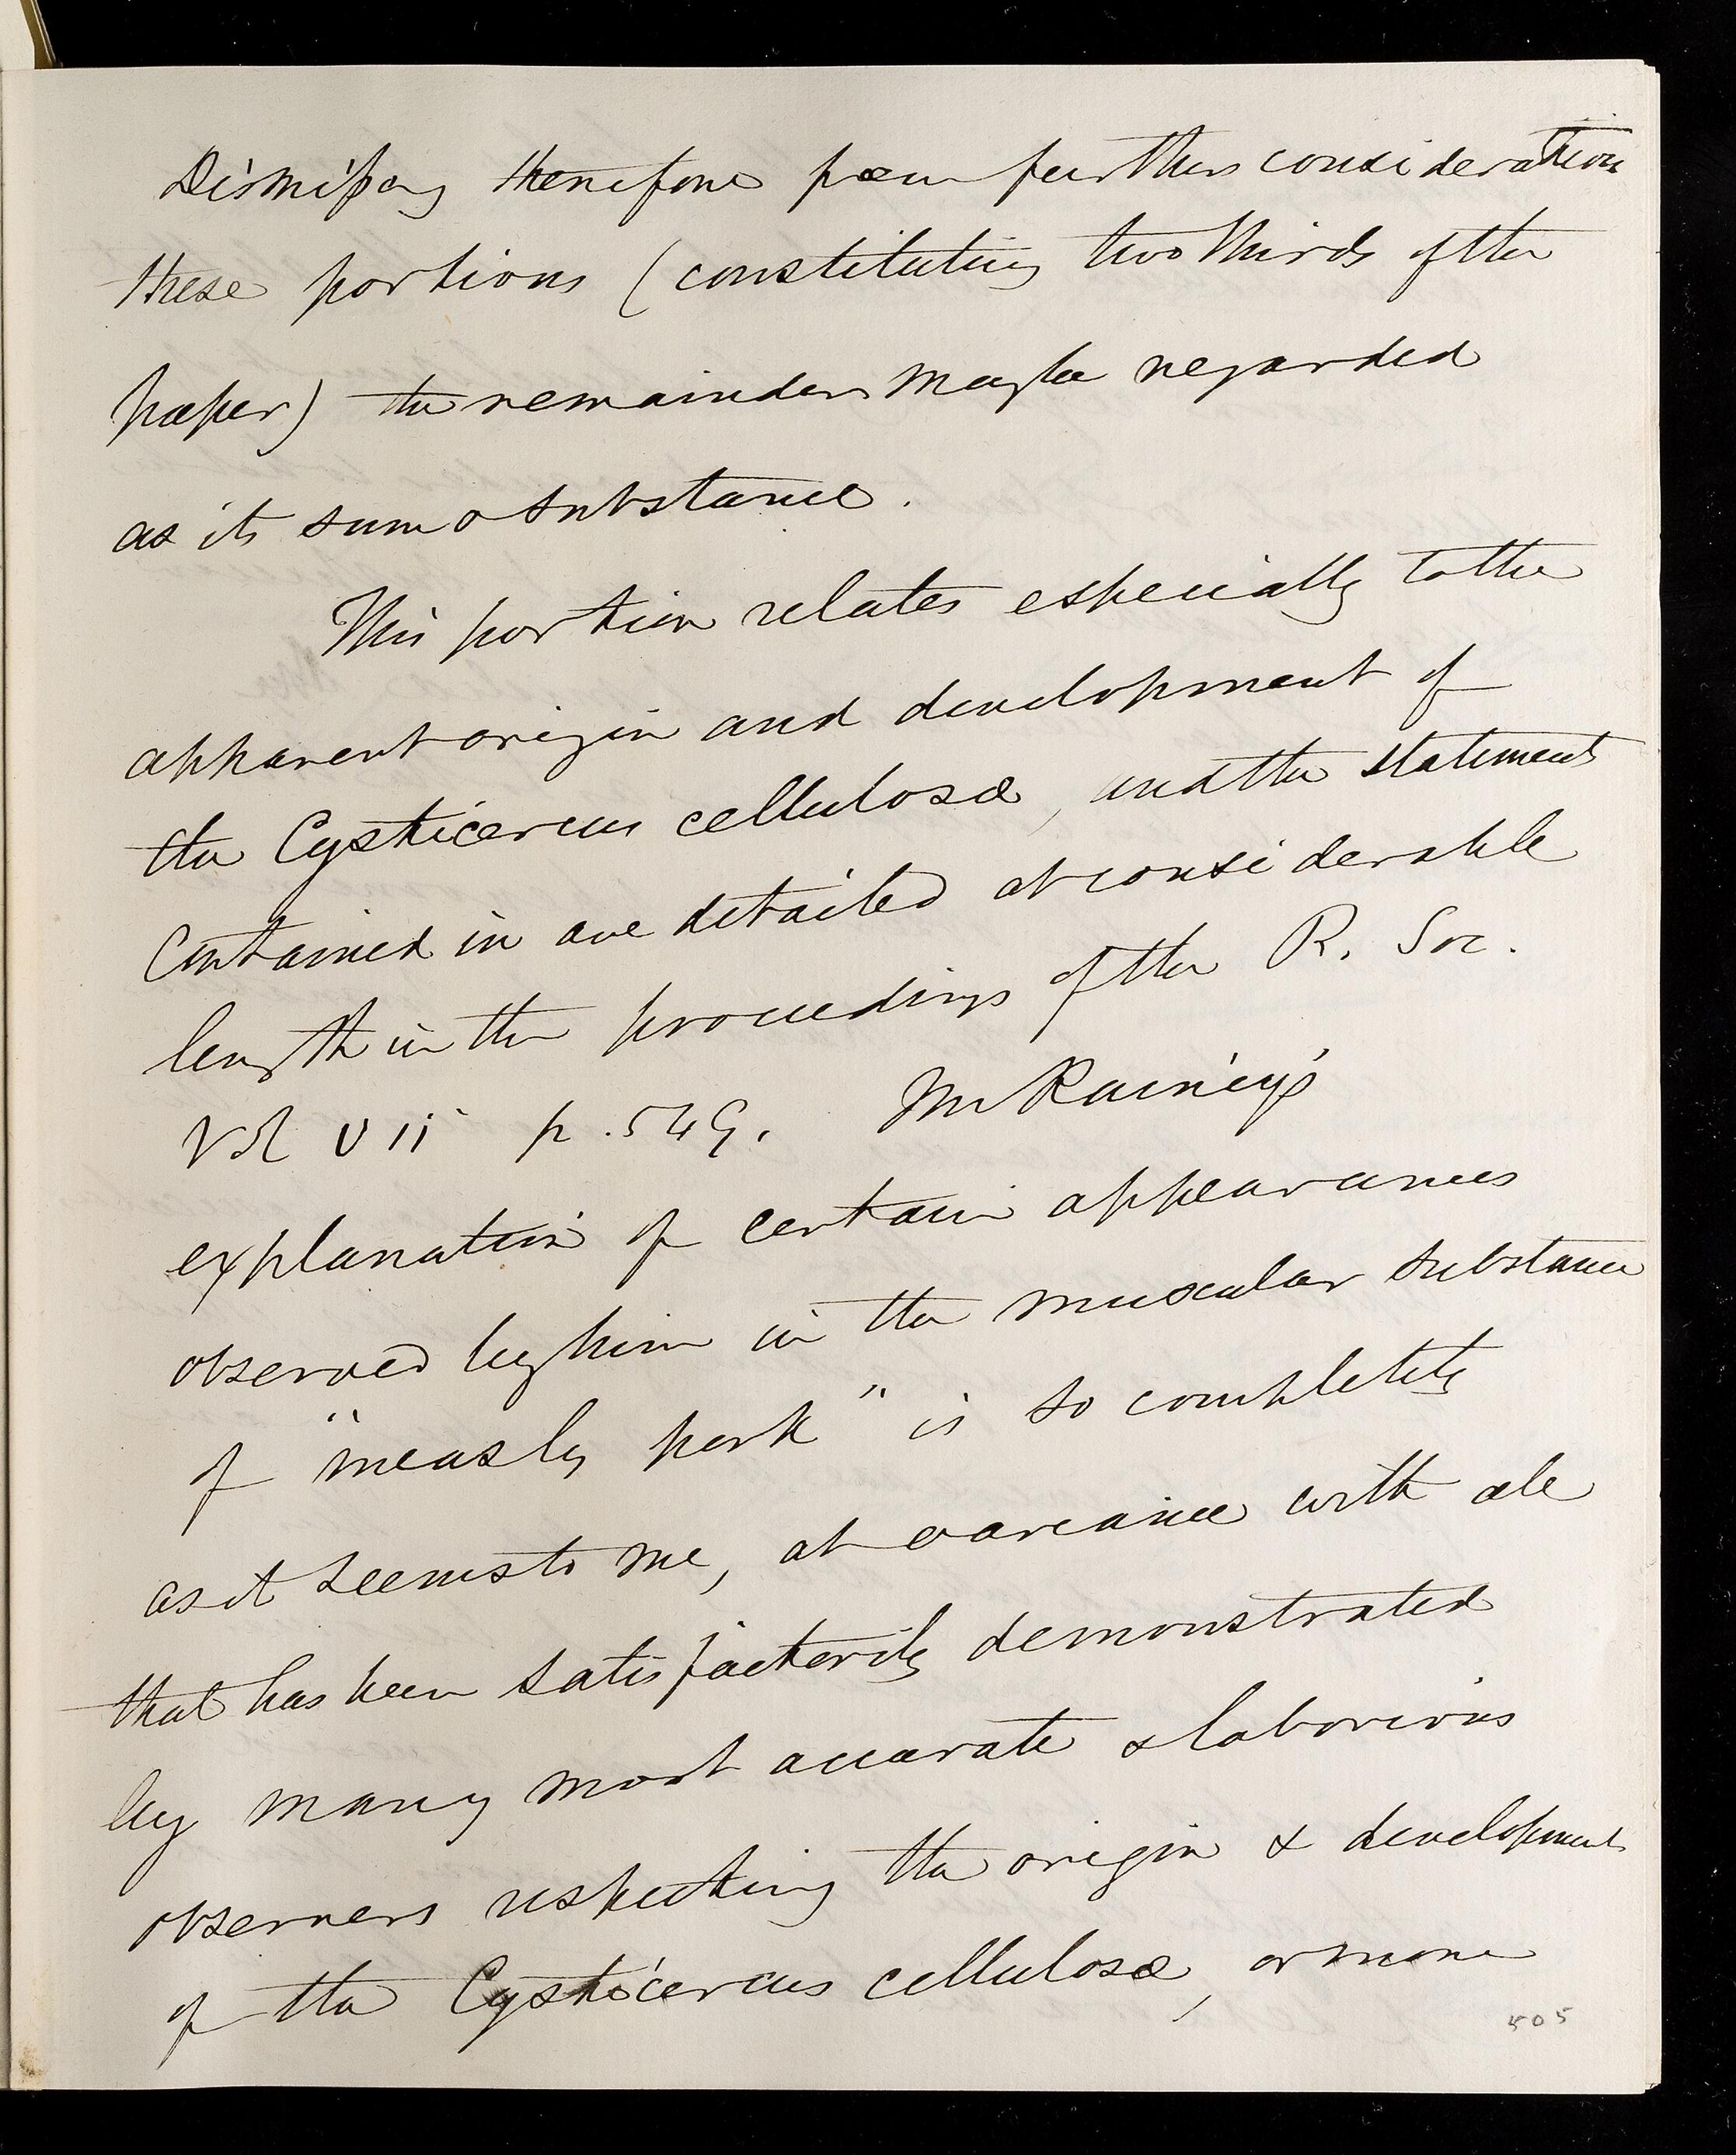 Dismissing therefore from further consideration
these portions (constituting two thirds of the
paper) the remainder may be regarded
as its sum & substance.
This portion relates especially to the
apparent origin and development of
the Cysticercus cellulosæ, and the statements
contained in are detailed at considerable
length in the proceedings of the R. Soc.
Vol VII p. 549. Mr Rainey's
explanation of certain appearances
observed by him in the muscular substance
of "measly pork" is so completely
as it seems to me, at variance with all
that has been satisfactorily demonstrated
by many most accurate & laborious
observers respecting the origin & development
of the Cysticercus cellulosæ, or more
505